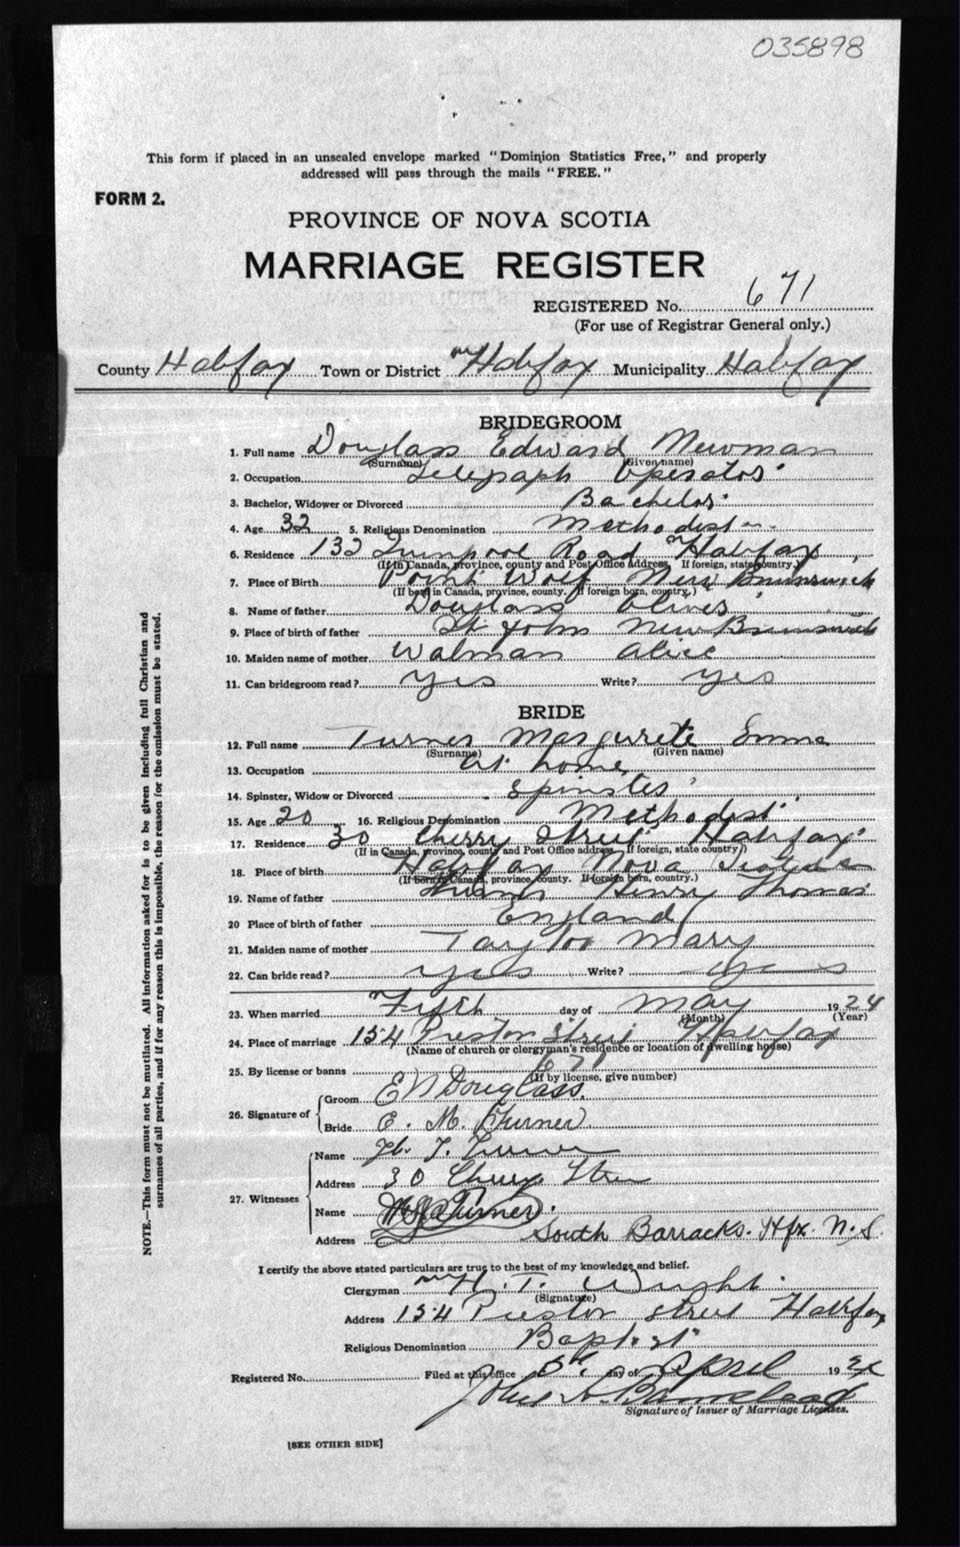 035898
This form if placed in an unsealed envelope marked "Dominion Statistics Free," and properly
addressed will pass through the mails "FREE."
FORM 2.
PROVINCE OF NOVA SCOTIA
MARRIAGE REGISTER
REGISTERED No. 671
(For use of Registrar General only.)
County Halifax Town or District Halifax Municipality Halifax
BRIDEGROOM
1. Full name Douglass Edward Newman
(Surname) (Given name)
2. Occupation Telegraph Operator
3. Bachelor, Widower or Divorced Bachelor
4. Age 32 5. Religious Denomination Methodist
6. Residence 132 Quinpool Road Halifax
(If in Canada, province, county and Post Office address, If foreign, state country.)
7. Place of Birth Point Wolf New Brunswick
(If born in Canada, province, county. If foreign born, country.)
8. Name of father Douglass Oliver
9. Place of birth of father St John New Brunswick
10. Maiden name of mother Walman Alice
11. Can bridegroom read? yes Write? yes
BRIDE
12. Full name Turner Margurete Emma
(Surname) (Given name)
13. Occupation at home
14. Spinster, Widow or Divorced Spinster
15. Age 20 16. Religious Denomination Methodist
17. Residence 30 Cherry Street Halifax
(If in Canada, province, county and Post Office address, If foreign, state country)
18. Place of birth Halifax Nova Scotia
(If born in Canada, province, county. If foreign born, country.)
19. Name of father Henry Thomas
20 Place of birth of father England
21. Maiden name of mother Taylor Mary
22. Can bride read? yes Write? yes
23. When married Fifth day of May 1924
(Month) (Year)
24. Place of marriage 154 Preston Street Halifax
(Name of church or clergyman's residence or location of dwelling house)
25. By license or banns 671
(If by license, give number)
26. Signature of Groom E N Douglass.
Bride E. M. Turner
27. Witnesses Name H. T. Turner
Address 30 Cherry Street
Name Turner
Address South Barracks. Hfx. N.S.
I certify the above stated particulars are true to the best of my knowledge and belief.
Clergyman H. T. Wright
(Signature)
Address 154 Preston Street Halifax
Religious Denomination Baptist
Registered No. Filed at this office 5th day of April 1924
Signature of Issuer of Marriage Licenses.
[SEE OTHER SIDE]
NOTE.—This form must not be mutilated. All information asked for is to be given including full Christian and
surnames of all parties, and if for any reason this is impossible, the reason for the omission must be stated.